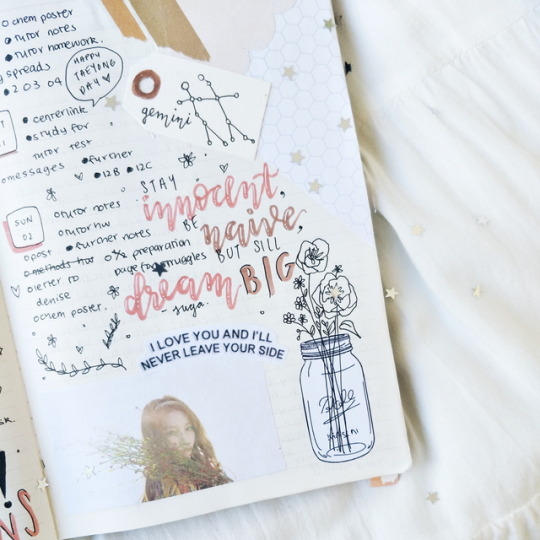 o chem poster
• tutor notes
• tutor homework.
spreads
• 2 03 04
HAPPY
TAEYONG
DAY
gemini
• centerlink
• study for
tutor test
o messages • further
• 12B • 12C
SUN
02
o tutor notes
o tutor hw
• further notes
o post
o methods hw
o letter to
denise
o chem poster.
preparation
STAY
innocent,
BE
naive,
BUT SILL
dream BIG
- suga.
I LOVE YOU AND I'LL
NEVER LEAVE YOUR SIDE
sk.
NS